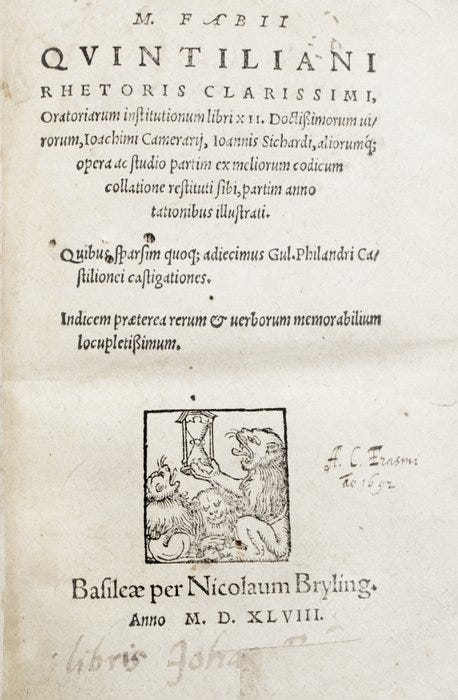 M. FABII
QVINTILIANI
RHETORIS CLARISSIMI,
Oratoriarum institutionum libri XII. Doctißimorum ui/
rorum, Ioachimi Camerarij, Ioannis Sichardi, aliorumq́;
opera ac studio partim ex meliorum codicum
collatione restituti sibi, partim anno
tationibus illustrati.
Quibus sparsim quoq; adiecimus Gul. Philandri Ca/
stilionei castigationes.
Indicem præterea rerum & uerborum memorabilium
locupletißimum.
A. C. Erasmi
Ao 1692
Basileæ per Nicolaum Bryling.
Anno M. D. XLVIII.
libris Joha